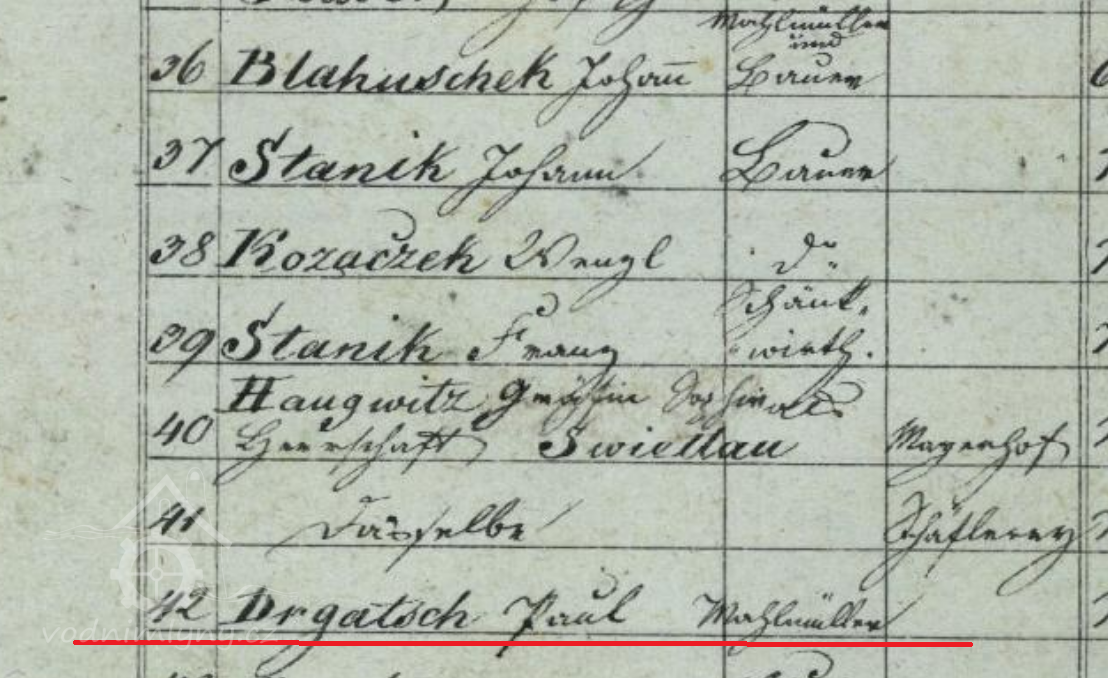 Mahlmüller
und
36 Blahuschek Johañ Bauer
37 Stanik Johann Bauer
38 Kozaczek Wenzl dº
Schänk-
39 Stanik Franz wirth.
Haugwitz Gräfin Sophie als
40 Herrschaft Swietlau Mayerhof
41 Dasselbe Schäflerey
42 Drgatsch Paul Mahlmüller
vodnimlyny.cz